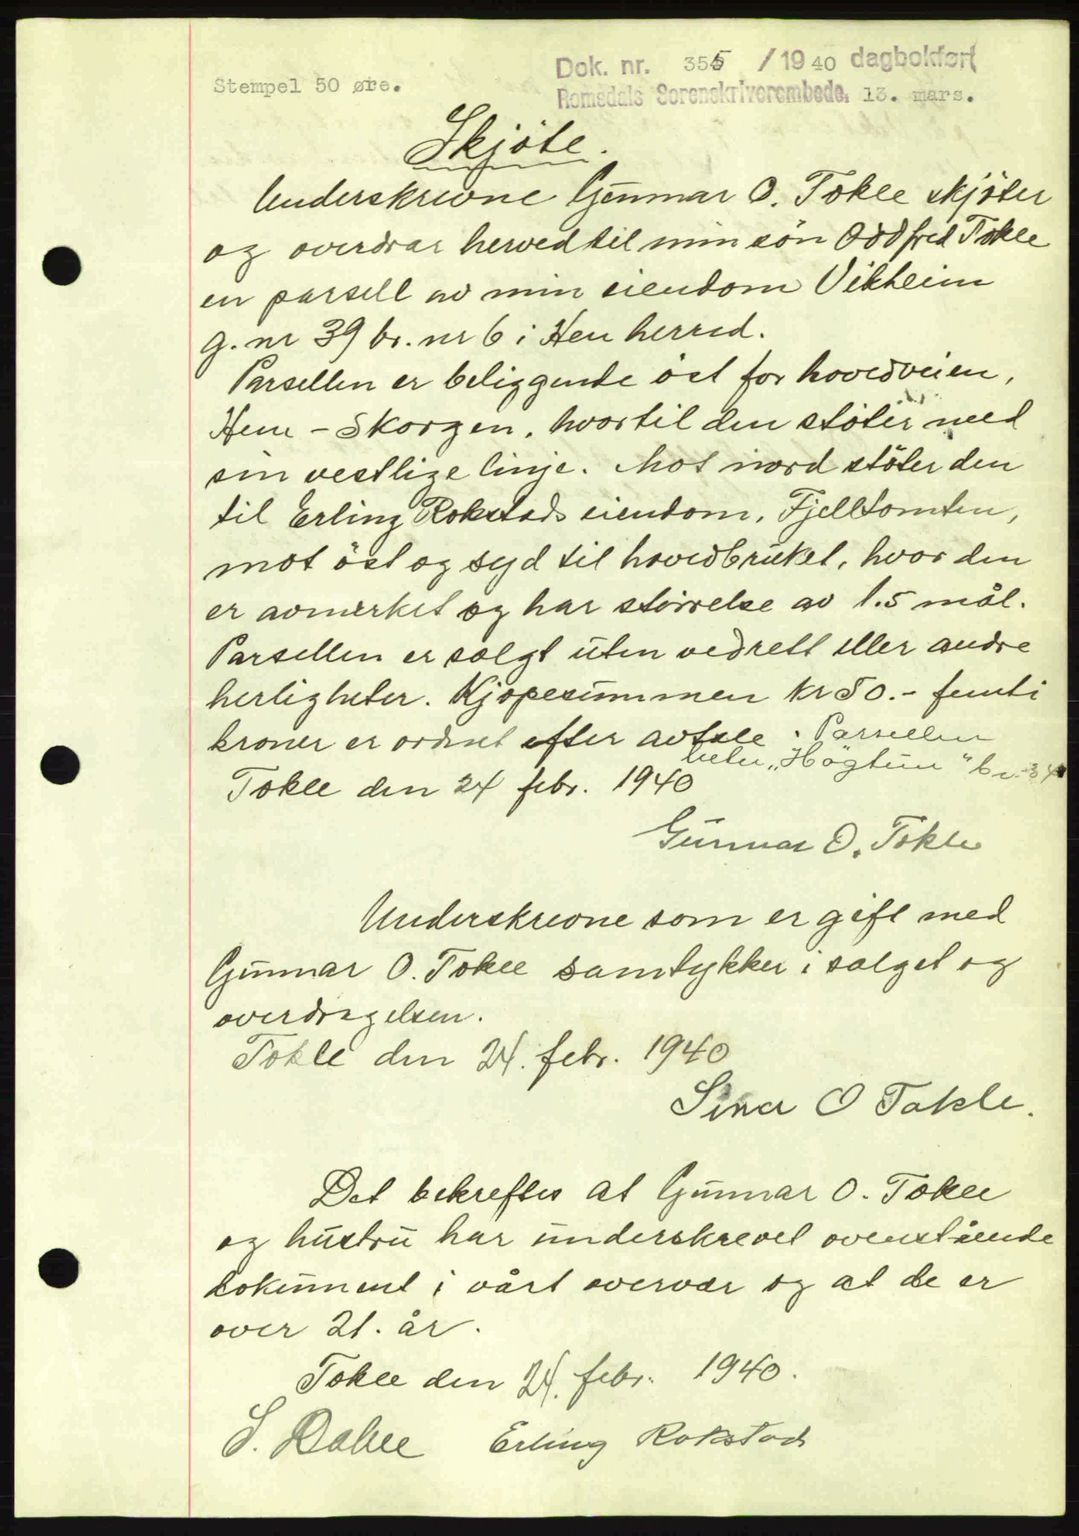 Stempel 50 øre.
Dok. nr. 355 / 1940 dagbokført
Romsdals Sorenskriverembede, 13. mars.
Skjöte.
Underskrevne Gunnar O. Tokle skjöter
og overdrar herved til min sön Oddfred Tokle
en parsell av min eiendom Vikheim
g. nr 39 br. nr 6 i Hen herred.
Parsellen er beliggende öst for hovedveien,
Hen - Skorgen, hvortil den stöter med
sin vestlige linje. Mot nord stöter den
til Erling Rokstads eiendom, Fjelltomten,
mot öst og syd til hovedbruket, hvor den
er avmerket og har störrelse av 1.5 mål.
Parsellen er solgt uten vedrett eller andre
herligheter. Kjöpesummen kr 50.- femti
kroner er ordnet efter avtale. Parsellen
heter "Högtun" br. 34
Tokle den 24 febr. 1940
Gunnar O. Tokle
Underskrevne som er gift med
Gunnar O. Tokle samtykker i salget og
overdragelsen.
Tokle den 24. febr. 1940
Sina O Tokle.
Det bekreftes at Gunnar O. Tokle
og hustru har underskrevet ovenstående
dokument i vårt overvær og at de er
over 21. år.
Tokle den 24. febr. 1940.
S. Dahle Erling Rokstad